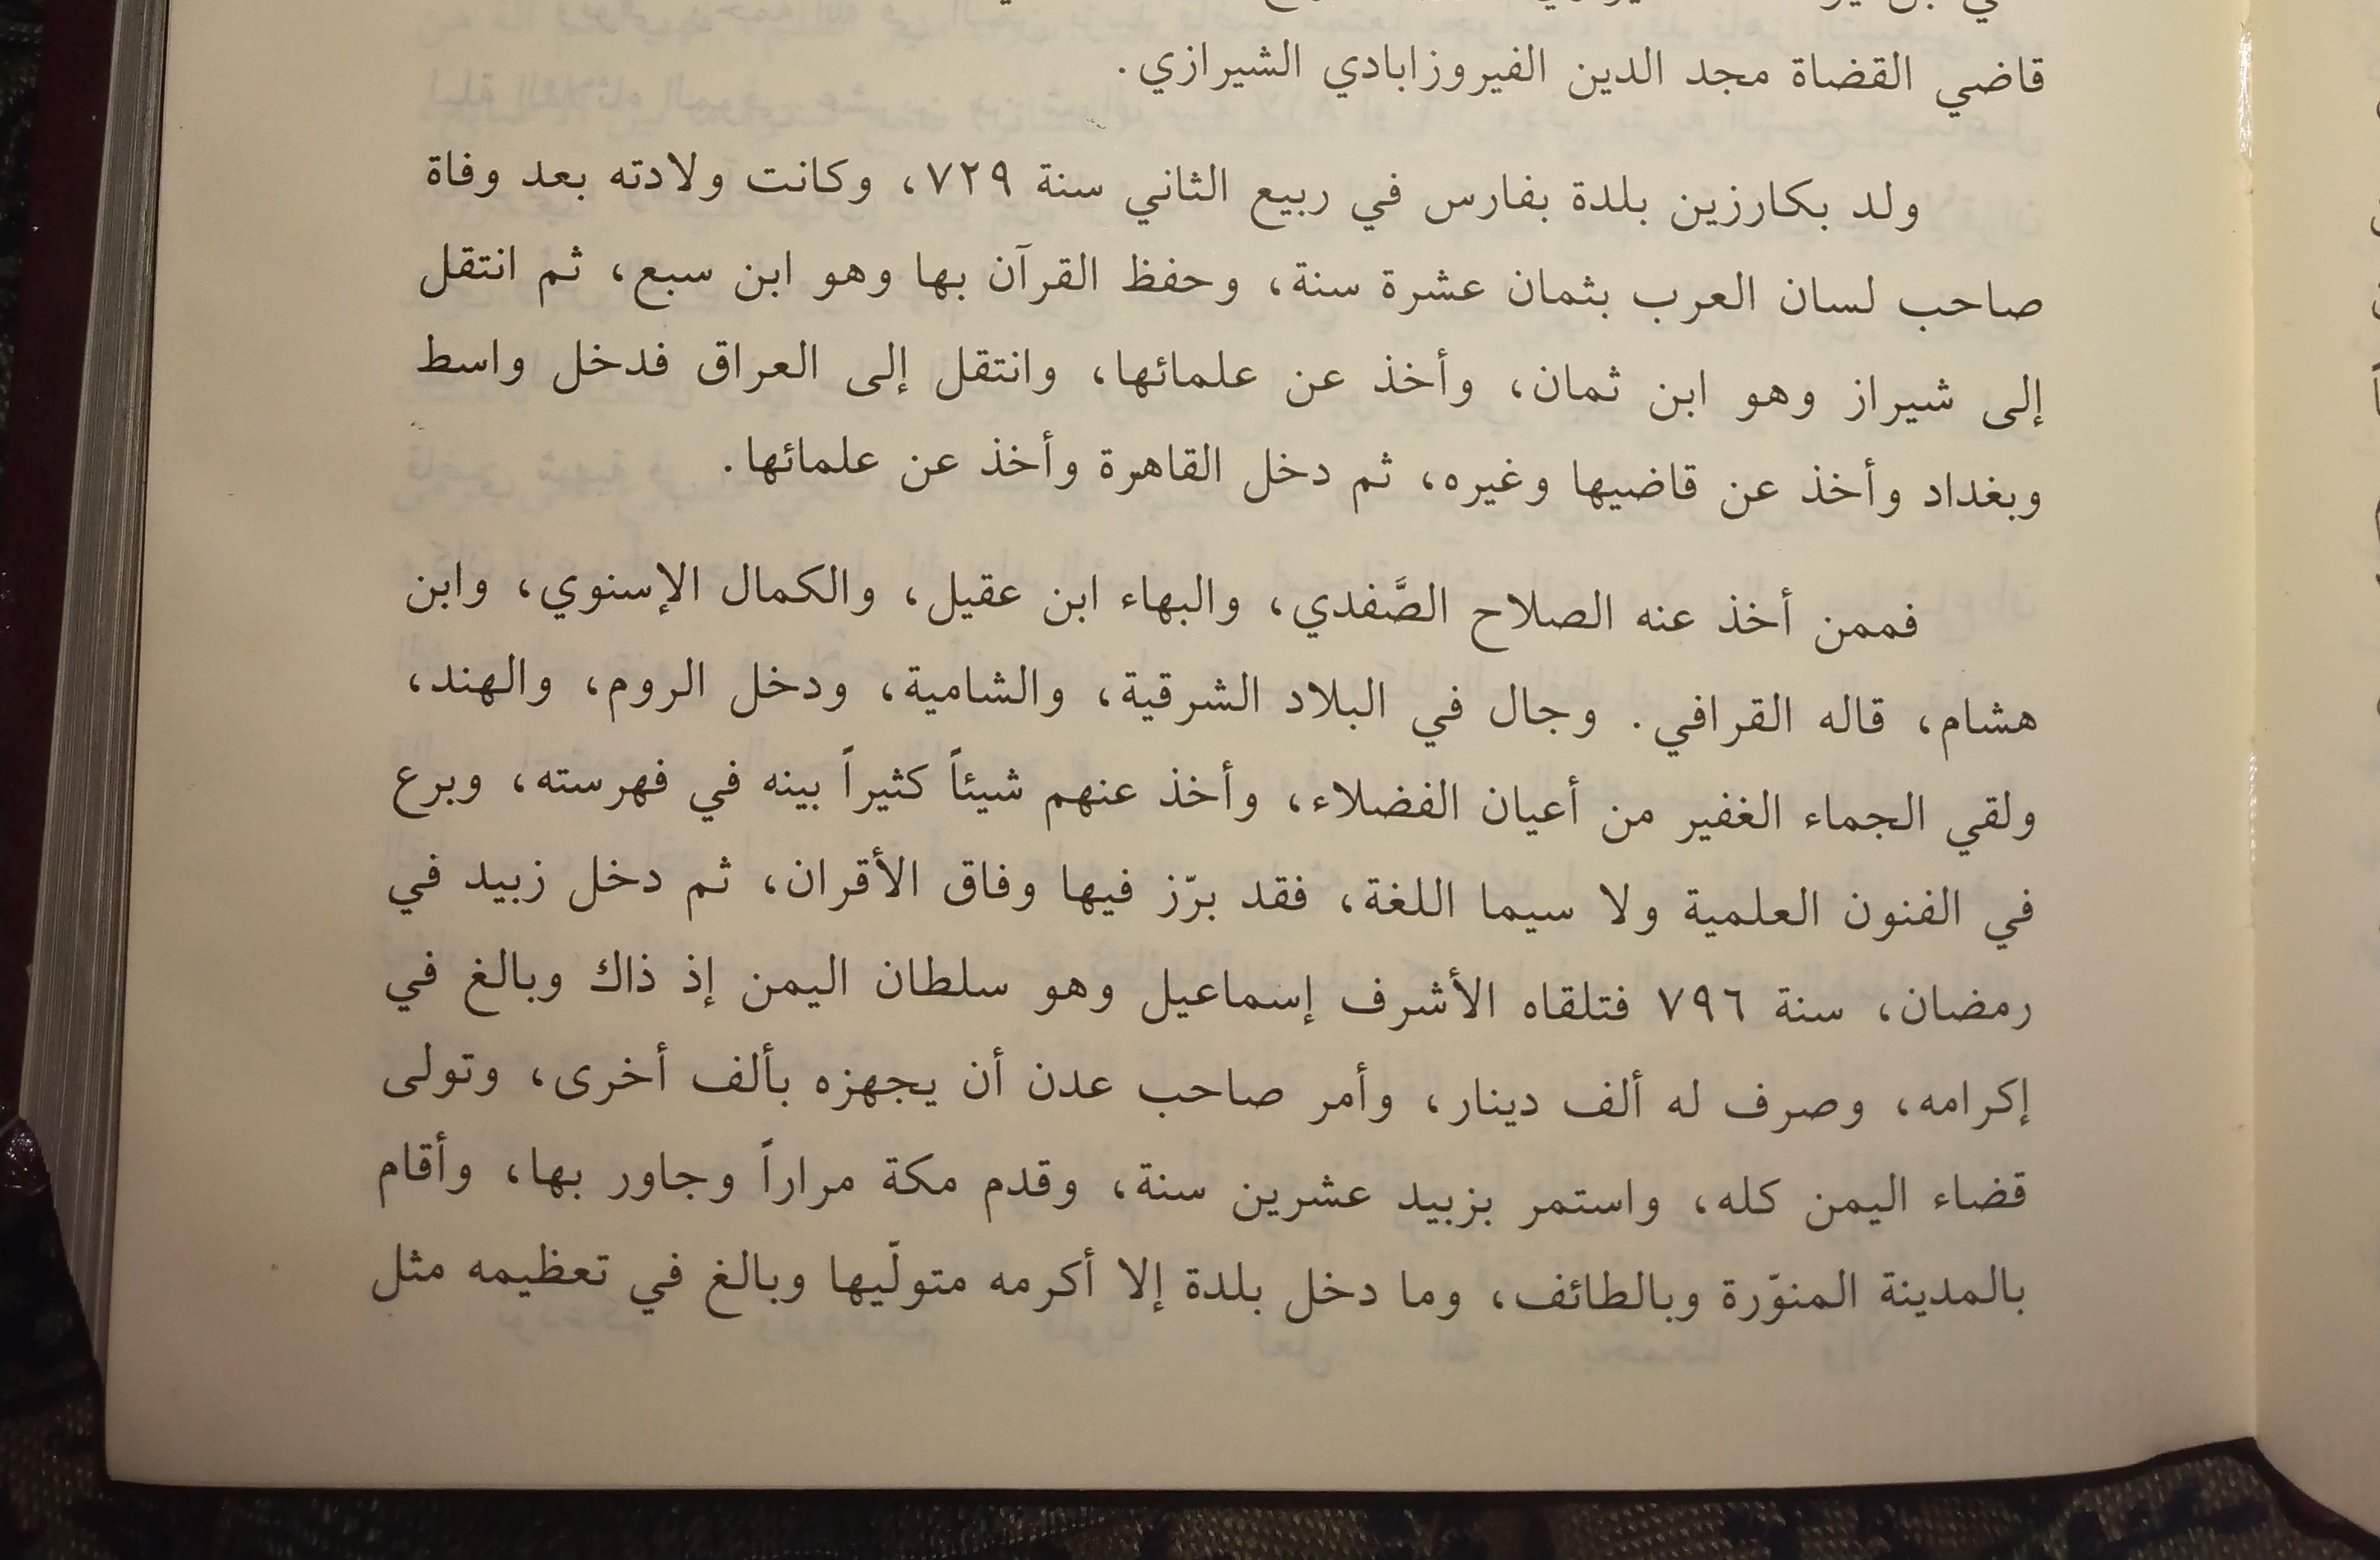 قاضي القضاة مجد الدين الفيروزابادي الشيرازي.
ولد بكارزين بلدة بفارس في ربيع الثاني سنة ٧٢٩، وكانت ولادته بعد وفاة
صاحب لسان العرب بثمان عشرة سنة، وحفظ القرآن بها وهو ابن سبع، ثم انتقل
إلى شيراز وهو ابن ثمان، وأخذ عن علمائها، وانتقل إلى العراق فدخل واسط
وبغداد وأخذ عن قاضيها وغيره، ثم دخل القاهرة وأخذ عن علمائها.
فممن أخذ عنه الصلاح الصَّفدي، والبهاء ابن عقيل، والكمال الإسنوي، وابن
هشام، قاله القرافي. وجال في البلاد الشرقية، والشامية، ودخل الروم، والهند،
ولقي الجماء الغفير من أعيان الفضلاء، وأخذ عنهم شيئاً كثيراً بينه في فهرسته، وبرع
في الفنون العلمية ولا سيما اللغة، فقد برّز فيها وفاق الأقران، ثم دخل زبيد في
رمضان، سنة ٧٩٦ فتلقاه الأشرف إسماعيل وهو سلطان اليمن إذ ذاك وبالغ في
إكرامه، وصرف له ألف دينار، وأمر صاحب عدن أن يجهزه بألف أخرى، وتولى
قضاء اليمن كله، واستمر بزبيد عشرين سنة، وقدم مكة مراراً وجاور بها، وأقام
بالمدينة المنوّرة وبالطائف، وما دخل بلدة إلا أكرمه متولّيها وبالغ في تعظيمه مثل